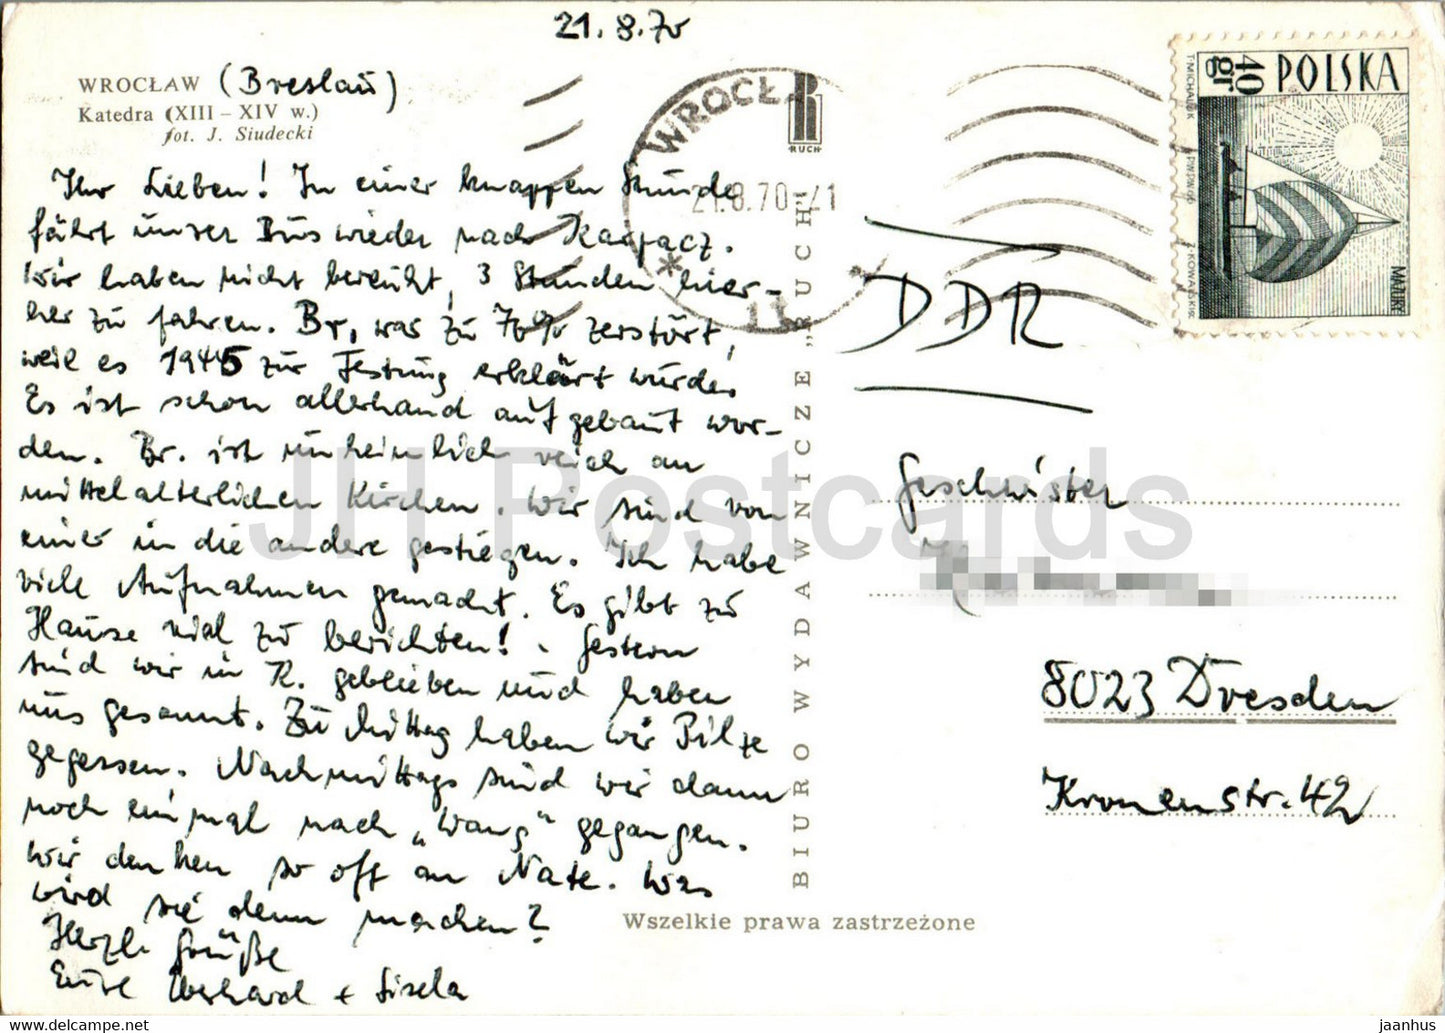 21.8.70
WROCŁAW (Breslau)
Katedra (XIII – XIV w.)
fot. J. Siudecki
Ihr Lieben! In einer knappen Stunde
fährt unser Bus wieder nach Karpacz.
Wir haben nicht bereüht, 3 Stunden hier-
her zu fahren. Br, war zu 70% zerstört,
weil es 1945 zur Festung erklärt wurde.
Es ist schon allerhand aufgebaut wor-
den. Br. ist unheimlich reich an
mittelalterlichen Kirchen. Wir sind von
einer in die andere gestiegen. Ich habe
viele Aufnahmen gemacht. Es gibt zu
Hause viel zu berichten! - Gestern
sind wir in K. geblieben und haben
uns gesonnt. Zu Mittag haben wir Pilze
gegessen. Nachmittags sind wir dann
noch einmal nach „Wang“ gegangen.
Wir denken so oft an Nate. Was
wird sie denn machen?
Herzl. Grüße
Eure Eberhard + Gisela
WROCŁA
21.8.70-21
* 11
RUCH
BIURO WYDAWNICZE „RUCH”
Wszelkie prawa zastrzeżone
POLSKA
40 gr
T. MICHALUK
PWPW 66
Z. KOWALSKI
MAZURY
DDR
Geschwister
8023 Dresden
Kronenstr. 42
JH Postcards
jaanhus — https://www.delcampe.net